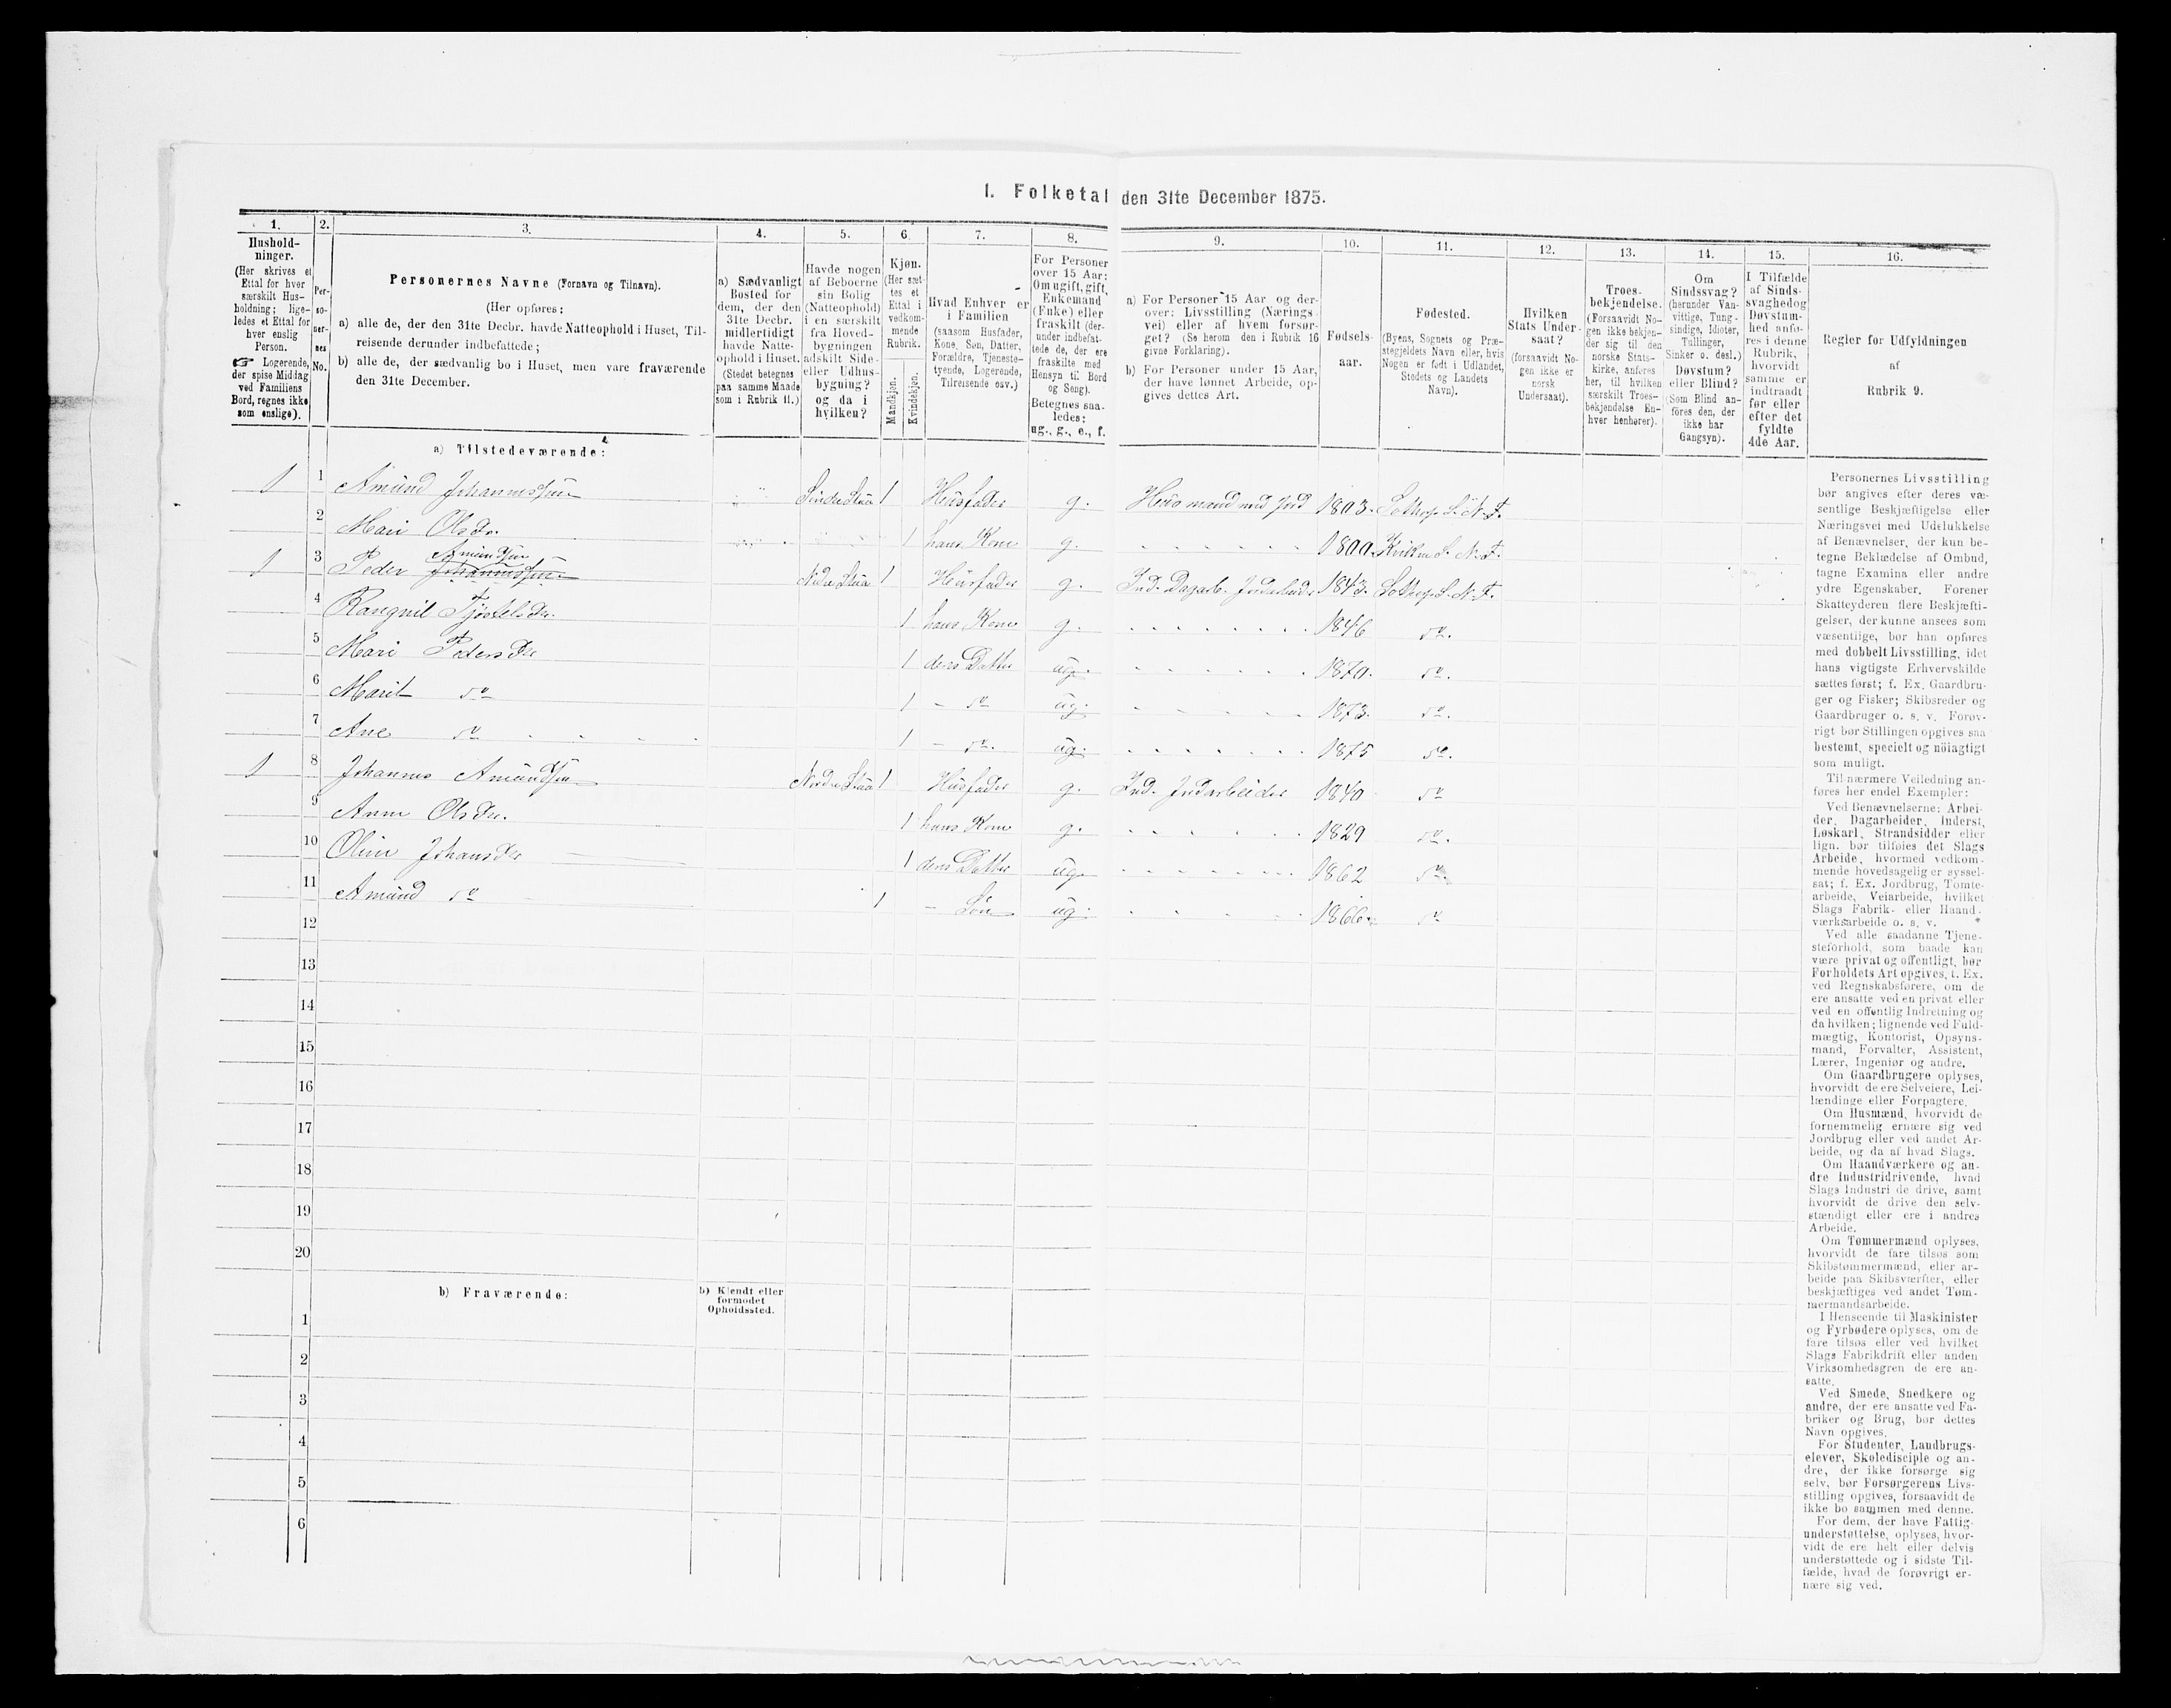 I. Folketal den 31te December 1875.
1.
Hushold-
ninger.
(Her skrives et
Ettal for hver
særskilt Hus-
holdning; lige-
ledes et Ettal for
hver enslig
Person.
☞ Logerende,
der spise Middag
ved Familiens
Bord, regnes ikke
som enslige).
2.
Per-
so-
ner-
nes
No.
3.
Personernes Navne (Fornavn og Tilnavn).
(Her opføres:
a) alle de, der den 31te Decbr. havde Natteophold i Huset, Til-
reisende derunder indbefattede;
b) alle de, der sædvanlig bo i Huset, men vare fraværende
den 31te December.
4.
a) Sædvanligt
Bosted for
dem, der den
31te Decbr.
midlertidigt
havde Natte-
ophold i Huset.
(Stedet betegnes
paa samme Maade
som i Rubrik 11.)
5.
Havde nogen
af Beboerne
sin Bolig
(Natteophold)
i en særskilt
fra Hoved-
bygningen
adskilt Side-
eller Udhus-
bygning?
og da i
hvilken?
6.
Kjøn.
(Her sæt-
tes et
Ettal i
vedkom-
mende
Rubrik.
Mandkjøn.
Kvindekjøn.
7.
Hvad Enhver er
i Familien
(saasom Husfader,
Kone, Søn, Datter,
Forældre, Tjeneste-
tyende, Logerende,
Tilreisende osv.)
8.
For Personer
over 15 Aar:
Om ugift, gift,
Enkemand
(Enke) eller
fraskilt (der-
under indbefat-
tede de, der ere
fraskilte med
Hensyn til Bord
og Seng).
Betegnes saa-
ledes:
ug., g., e., f.
9.
a) For Personer 15 Aar og der-
over: Livsstilling (Nærings-
vei) eller af hvem forsør-
get? (Se herom den i Rubrik 16
givne Forklaring).
b) For Personer under 15 Aar,
der have lønnet Arbeide, op-
gives dettes Art.
10.
Fødsels-
aar.
11.
Fødested.
(Byens, Sognets og Præ-
stegjeldets Navn eller, hvis
Nogen er født i Udlandet,
Stedets og Landets
Navn).
12.
Hvilken
Stats Under-
saat?
(forsaavidt No-
gen ikke er
norsk
Undersaat).
13.
Troes-
bekjendelse.
(Forsaavidt No-
gen ikke bekjen-
der sig til den
norske Stats-
kirke, anføres
her, til hvilken
særskilt Troes-
bekjendelse En-
hver henhører).
14.
Om
Sindssvag?
(herunder Van-
vittige, Tung-
sindige, Idioter,
Tullinger,
Sinker o. desl.)
Døvstum?
eller Blind?
(Som Blind an-
føres den, der
ikke har
Gangsyn).
15.
I Tilfælde
af Sinds-
svaghed og
Døvstum-
hed anfø-
res i denne
Rubrik,
hvorvidt
samme er
indtraadt
før eller
efter det
fyldte
4de Aar.
16.
Regler for Udfyldningen
af
Rubrik 9.
a) Tilstedeværende:
1 1 Amund Johannessen Søndre Stua 1 Husfader g. Husmand med Jord 1803. Sothorp S. N. F.
2 Mari Olsdr. 1 hans Kone g. 1800. Kvikne S. N. F.
1 3 Peder Amundsen Johannessen Nedre Stua 1 Husfader g. Ind. Dagarb. 1843. Sothorp S. N. F.
4 Rangnil Tjøstelsdr. 1 hans Kone g. 1846 do.
5 Mari Pedersdr 1 deres Datter ug. 1870. do.
6 Marit do 1 - do ug. 1873. do.
7 Ane do 1 - do. ug. 1875 do.
1 8 Johannes Amundsen Nordre Stua 1 Husfader g. Ind. Jordarbeider 1840 do
9 Anne Olsdr. 1 hans Kone g. 1829 do.
10 Oline Johansdr 1 deres Datter ug. 1862 do.
11 Amund do 1 - Søn ug. 1866 do
12
13
14
15
16
17
18
19
20
b) Fraværende:
b) Kjendt eller
formodet
Opholdssted.
1
2
3
4
5
6
Personernes Livsstilling
bør angives efter deres væ-
sentlige Beskjæftigelse eller
Næringsvei med Udelukkelse
af Benævnelser, der kun be-
tegne Beklædelse af Ombud,
tagne Examina eller andre
ydre Egenskaber. Forener
Skatteyderen flere Beskjæfti-
gelser, der kunne ansees som
væsentlige, bør han opføres
med dobbelt Livsstilling, idet
hans vigtigste Erhvervskilde
sættes først; f. Ex. Gaardbru-
ger og Fisker; Skibsreder og
Gaardbruger o. s. v. Forøv-
rigt bør Stillingen opgives saa
bestemt, specielt og nöiagtigt
som muligt.
Til nærmere Veiledning an-
føres her endel Exempler:
Ved Benævnelserne: Arbei-
der, Dagarbeider, Inderst,
Løskarl, Strandsidder eller
lign. bør tilføies det Slags
Arbeide, hvormed vedkom-
mende hovedsagelig er syssel-
sat; f. Ex. Jordbrug, Tomte-
arbeide, Veiarbeide, hvilket
Slags Fabrik- eller Haand-
værksarbeide o. s. v.
Ved alle saadanne Tjene-
steforhold, som baade kan
være privat og offentligt, bør
Forholdets Art opgives, t. Ex.
ved Regnskabsførere, om de
ere ansatte ved en privat eller
ved en offentlig Indretning og
da hvilken; lignende ved Fuld-
mægtig, Kontorist, Opsyns-
mand, Forvalter, Assistent,
Lærer, Ingeniør og andre.
Om Gaardbrugere oplyses,
hvorvidt de ere Selveiere, Lei-
lændinge eller Forpagtere.
Om Husmænd, hvorvidt de
fornemmelig ernære sig ved
Jordbrug eller ved andet Ar-
beide, og da af hvad Slags.
Om Haandværkere og an-
dre Industridrivende, hvad
Slags Industri de drive, samt
hvorvidt de drive den selv-
stændigt eller ere i andres
Arbeide.
Om Tømmermænd oplyses,
hvorvidt de fare tilsøs som
Skibstømmermænd, eller ar-
beide paa Skibsværfter, eller
beskjæftiges ved andet Tøm-
mermandsarbeide.
I Henseende til Maskinister
og Fyrbødere oplyses, om de
fare tilsøs eller ved hvilket
Slags Fabrikdrift eller anden
Virksomhedsgren de ere an-
satte.
Ved Smede, Snedkere og
andre, der ere ansatte ved Fa-
briker og Brug, bør dettes
Navn opgives.
For Studenter, Landbrugs-
elever, Skoledisciple og an-
dre, der ikke forsørge sig
selv, bør Forsørgerens Livs-
stilling opgives, forsaavidt de
ikke bo sammen med denne.
For dem, der have Fattig-
understøttelse, oplyses, hvor-
vidt de ere helt eller delvis
understøttede og i sidste Til-
fælde, hvad de forøvrigt er-
nære sig ved.